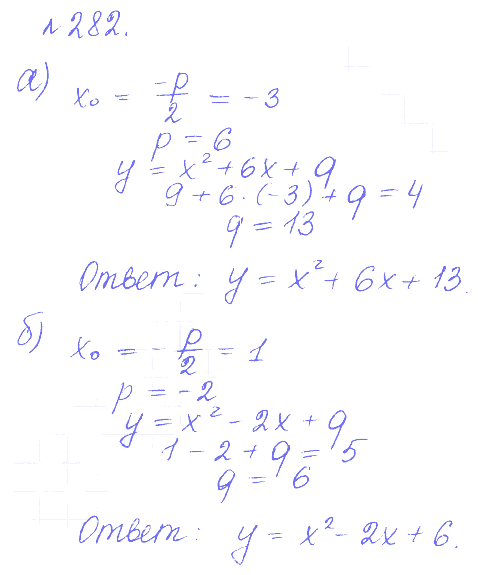 №282.
а) x₀ = -p/2 = -3
p = 6
y = x² + 6x + q
9 + 6·(-3) + q = 4
q = 13
Ответ: y = x² + 6x + 13.
б) x₀ = - p/2 = 1
p = -2
y = x² - 2x + q
1 - 2 + q = 5
q = 6
Ответ: y = x² - 2x + 6.